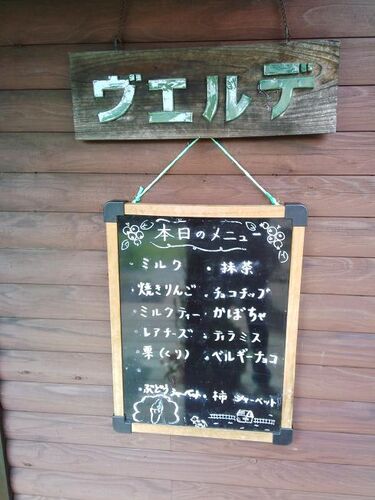 ヴェルデ
本日のメニュー
・ミルク ・抹茶
・焼きりんご ・チョコチップ
・ミルクティー ・かぼちゃ
・レアチーズ ・ティラミス
・栗(くり) ・ベルギーチョコ
・ぶどうシャーベット ・柿シャーベット